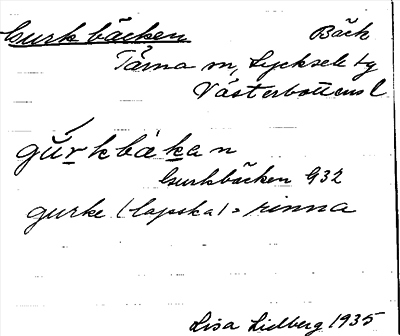 Gurkbäcken Bäck
Tärna sn, Lycksele lg
Västerbottens l
gŭrkbäkan
Gurkbäcken G32
gurke (lapska) = rinna
Lisa Lidberg 1935